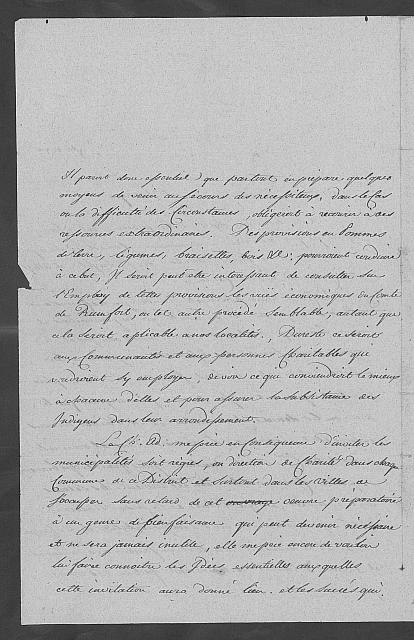 Il paroit donc essentiel que partout on prépare quelques
moyens de venir au secours des nécessiteux, dans le Cas
ou la difficulté des Circonstances, obligeroit à recourir à des
ressources extraordinaires. Des provisions en Pommes
de terre, légumes, braisettes, bois &c: pourroient conduire
à ce but, Il seroit peut être intéressant de consulter sur
l'Employ de telles provisions les vües économiques du Comte
de Rumfort, ou tel autre procédé semblable, autant que
cela seroit aplicable a nos localités, Du reste ce seroit
aux Communautés et aux personnes Charitables qui
voudroient s'y employer, de voir ce qui conviendroit le mieux
à chacune d'elles et pour assurer la subsistance des
Indigens dans leur arrondissement.
La Ch. Ad. me prie en Conséquence d'inviter les
municipalités soit régies, ou direction de Charité dans chaque
Commune de ce District et surtout dans les Villes de
s'occuper sans retard de cet oeuvre préparatoire
à un genre de bienfaisance qui peut devenir nécessaire
et ne sera jamais inutile, elle me prie encore de vouloir
lui faire connoitre les Idées essentielles auxquelles
cette invitation aura donné lieu et les succès qui